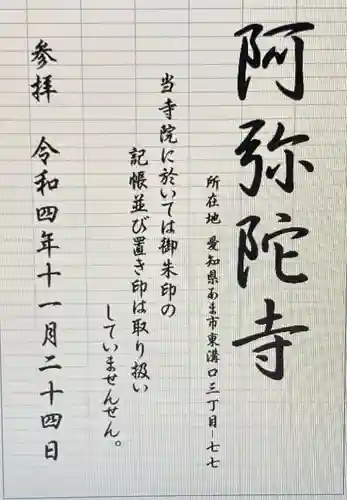 阿弥陀寺
所在地 愛知県あま市東溝口三丁目-七七
当寺院に於いては御朱印の
記帳並び置き印は取り扱い
していませんせん。
参拝 令和四年十一月二十四日